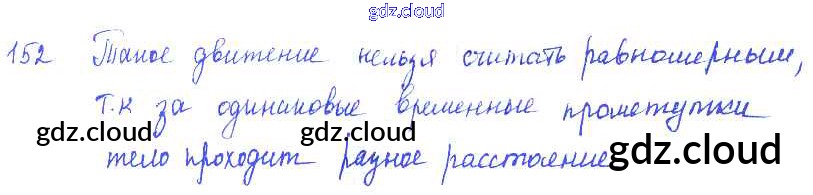 gdz.cloud
152 Такое движение нельзя считать равномерным,
т.к за одинаковые временные промежутки
gdz.cloud gdz.cloud
тело проходит разное расстояние
gdz.cloud